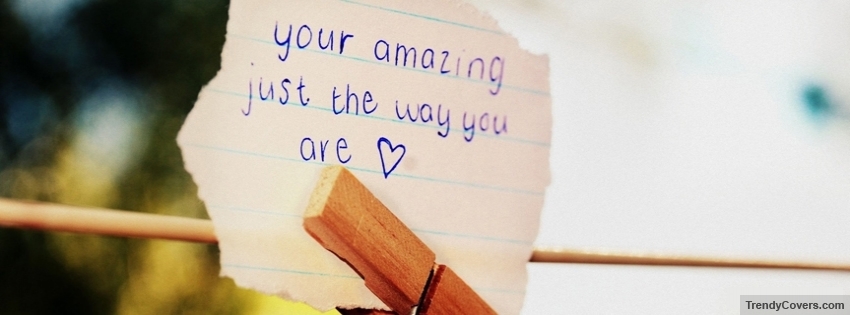 your amazing
just the way you
are ♡
TrendyCovers.com